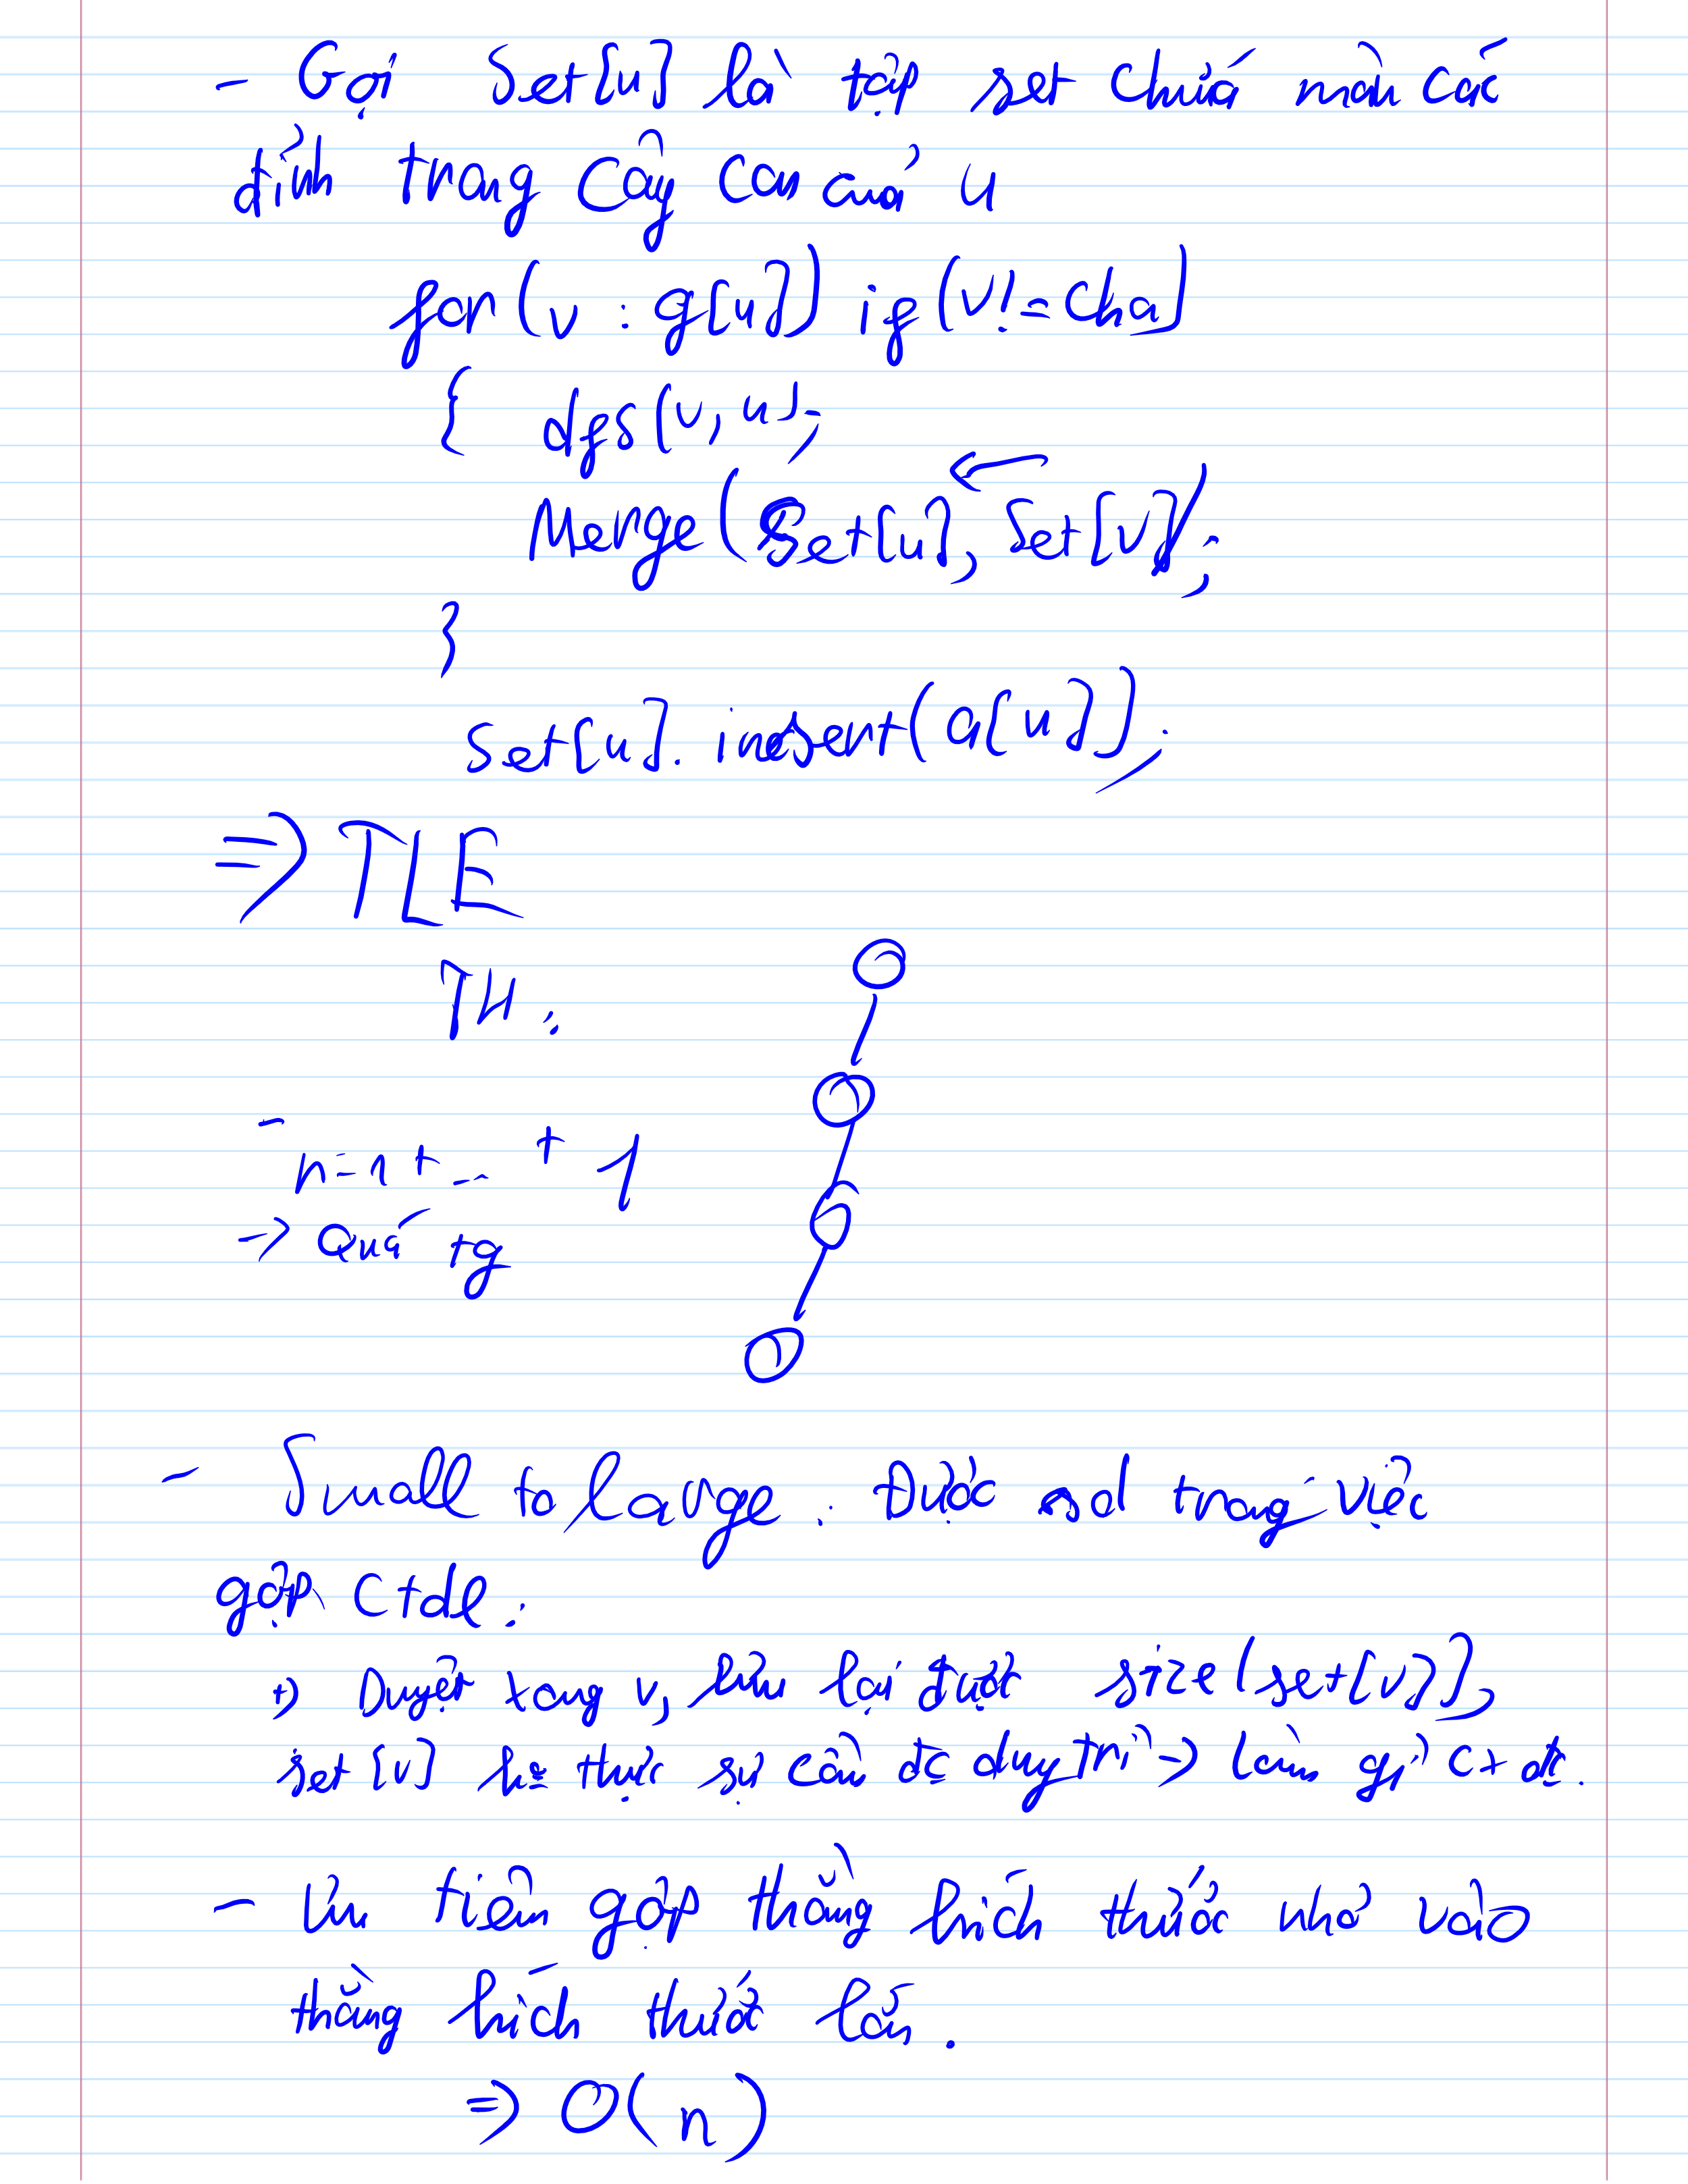 - Gọi Set[u] là tập set chứa màu các
đỉnh trong cây con của u
for(v : g[u]) if(v!=cha)
{ dfs(v,u);
Merge(Set[u], Set[v]);
}
Set[u].insert(a[u]);
=> TLE
TH:
- n-1 + ... + 1
-> Quá tg
- Small to large: Được sd trong việc
gộp ctdl:
+) Duyệt xong v, lưu lại được size(set[v]),
set[v] ko thực sự cần đc duy trì -> làm gì c+ đc.
- Ưu tiên gộp thằng kích thước nhỏ vào
thằng kích thước lớn.
=> O(n)